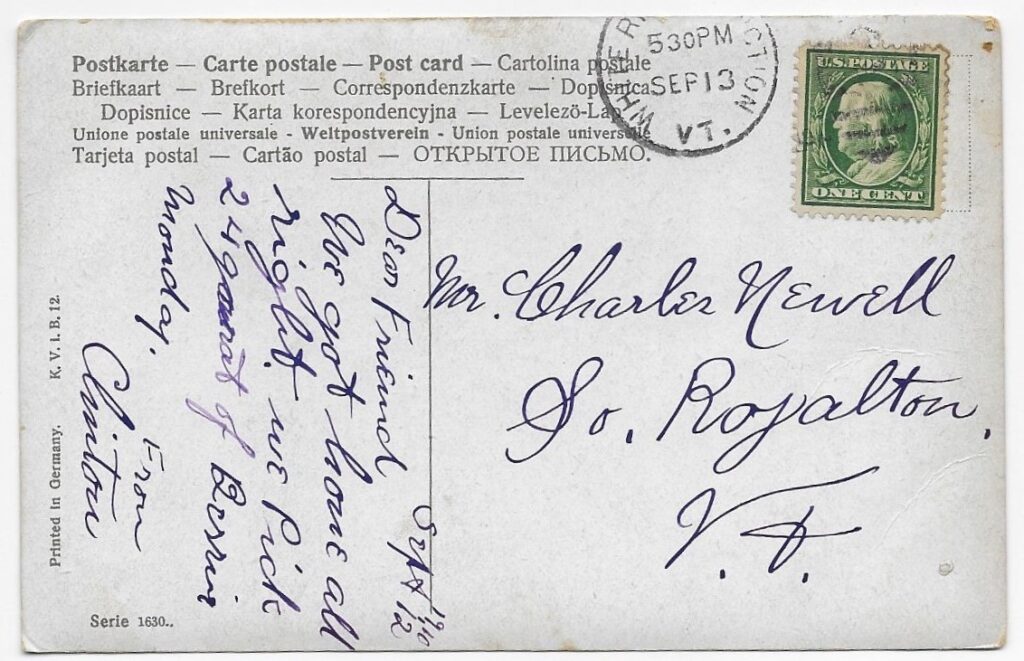 Postkarte — Carte postale — Post card — Cartolina postale
Briefkaart — Brefkort — Correspondenzkarte — Dopisnica
Dopisnice — Karta korespondencyjna — Levelezö-La
Unione postale universale - Weltpostverein - Union postale universelle
Tarjeta postal — Cartão postal — ОТКРЫТОЕ ПИСЬМО.
530PM
SEP 13
VT.
U.S. POSTAGE
ONE CENT
Sept 12
1910
Dear Friend
We got home all
right. we Pick
24 quarat of Berrie
monday.
From
Clinton
Mr. Charles Newell
So. Royalton,
V.T.
Printed in Germany. K. V. i. B. 12.
Serie 1630..